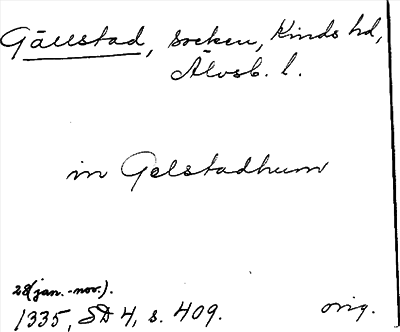 Gällstad, socken, Kinds hd,
Älvsb. l.
in Gelstadhum
28(jan.-nov.).
1335, SD 4, s. 409. orig.